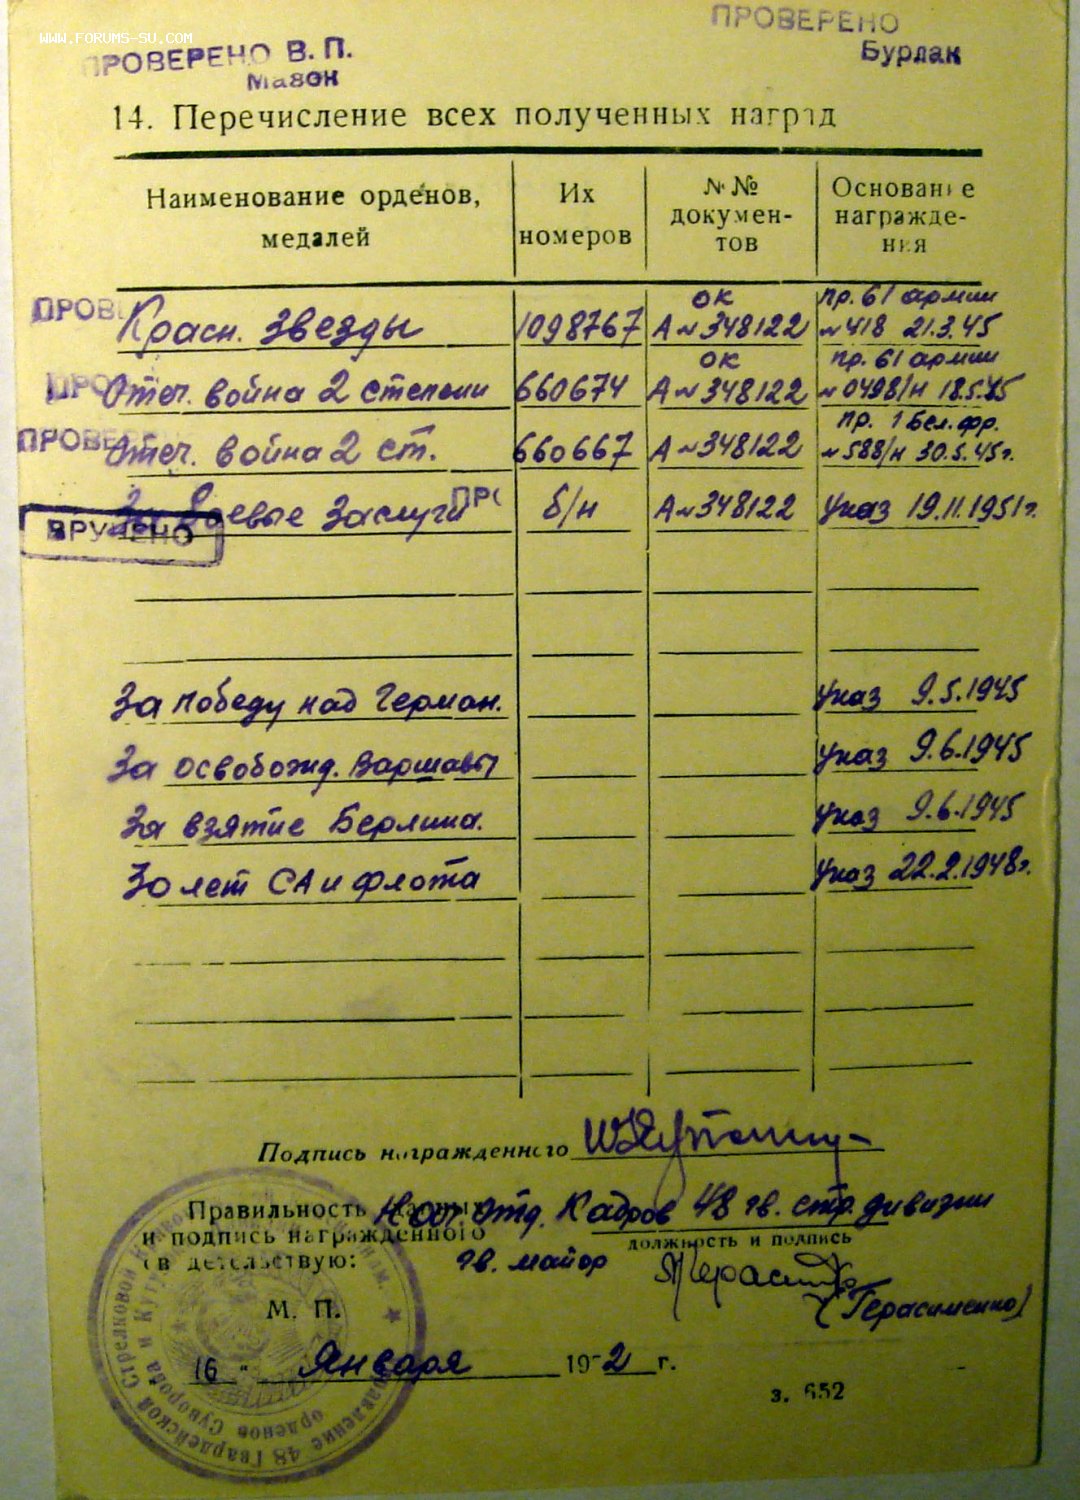 WWW.FORUMS-SU.COM
ПРОВЕРЕНО В. П.
Мазок
ПРОВЕРЕНО
Бурлак
14. Перечисление всех полученных наград
Наименование орденов, медалей
Их номеров
№№ документов
Основание награждения
ПРОВЕ Красн. Звезды 1098767 ОК А № 348122 пр. 61 армии № 418 21.3.45
ПРО Отеч. война 2 степени 660674 ОК А № 348122 пр. 61 армии № 0498/н 18.5.45
ПРОВЕРЕ Отеч. война 2 ст. 660667 А № 348122 пр. 1 Бел. фр. № 588/н 30.5.45г.
За Боевые Заслуги ПРО б/н А № 348122 Указ 19.11.1951г.
ВРУЧЕНО
За победу над Герман. Указ 9.5.1945
За освобожд. Варшавы Указ 9.6.1945
За взятие Берлина. Указ 9.6.1945
30 лет СА и флота Указ 22.2.1948г.
Подпись награжденного
Правильность данных
и подпись награжденного
свидетельствую:
Нач. отд. Кадров 48 гв. стр. дивизии
должность и подпись
гв. майор
(Герасименко)
М. П.
16 " Января 1952 г.
з. 652
Управление 48 Гвардейской Стрелковой
орденов Суворова и Кутузова